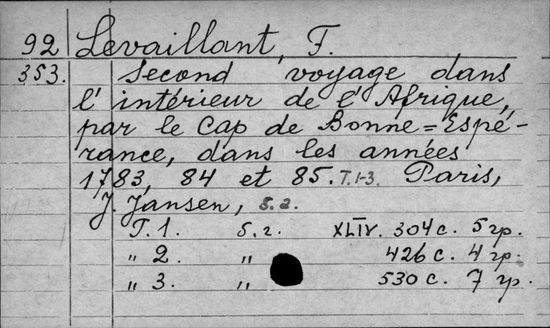 92 Levaillant, F.
353. Second voyage dans
l'intérieur de l'Afrique,
par le Cap de Bonne=Espé-
rance, dans les années
1783, 84 et 85. T.1-3. Paris,
J. Jansen, s. a.
T. 1. б.г. XLIV. 304 с. 5 гр.
„ 2. „ 426 с. 4 гр.
„ 3. „ 530 с. 7 гр.